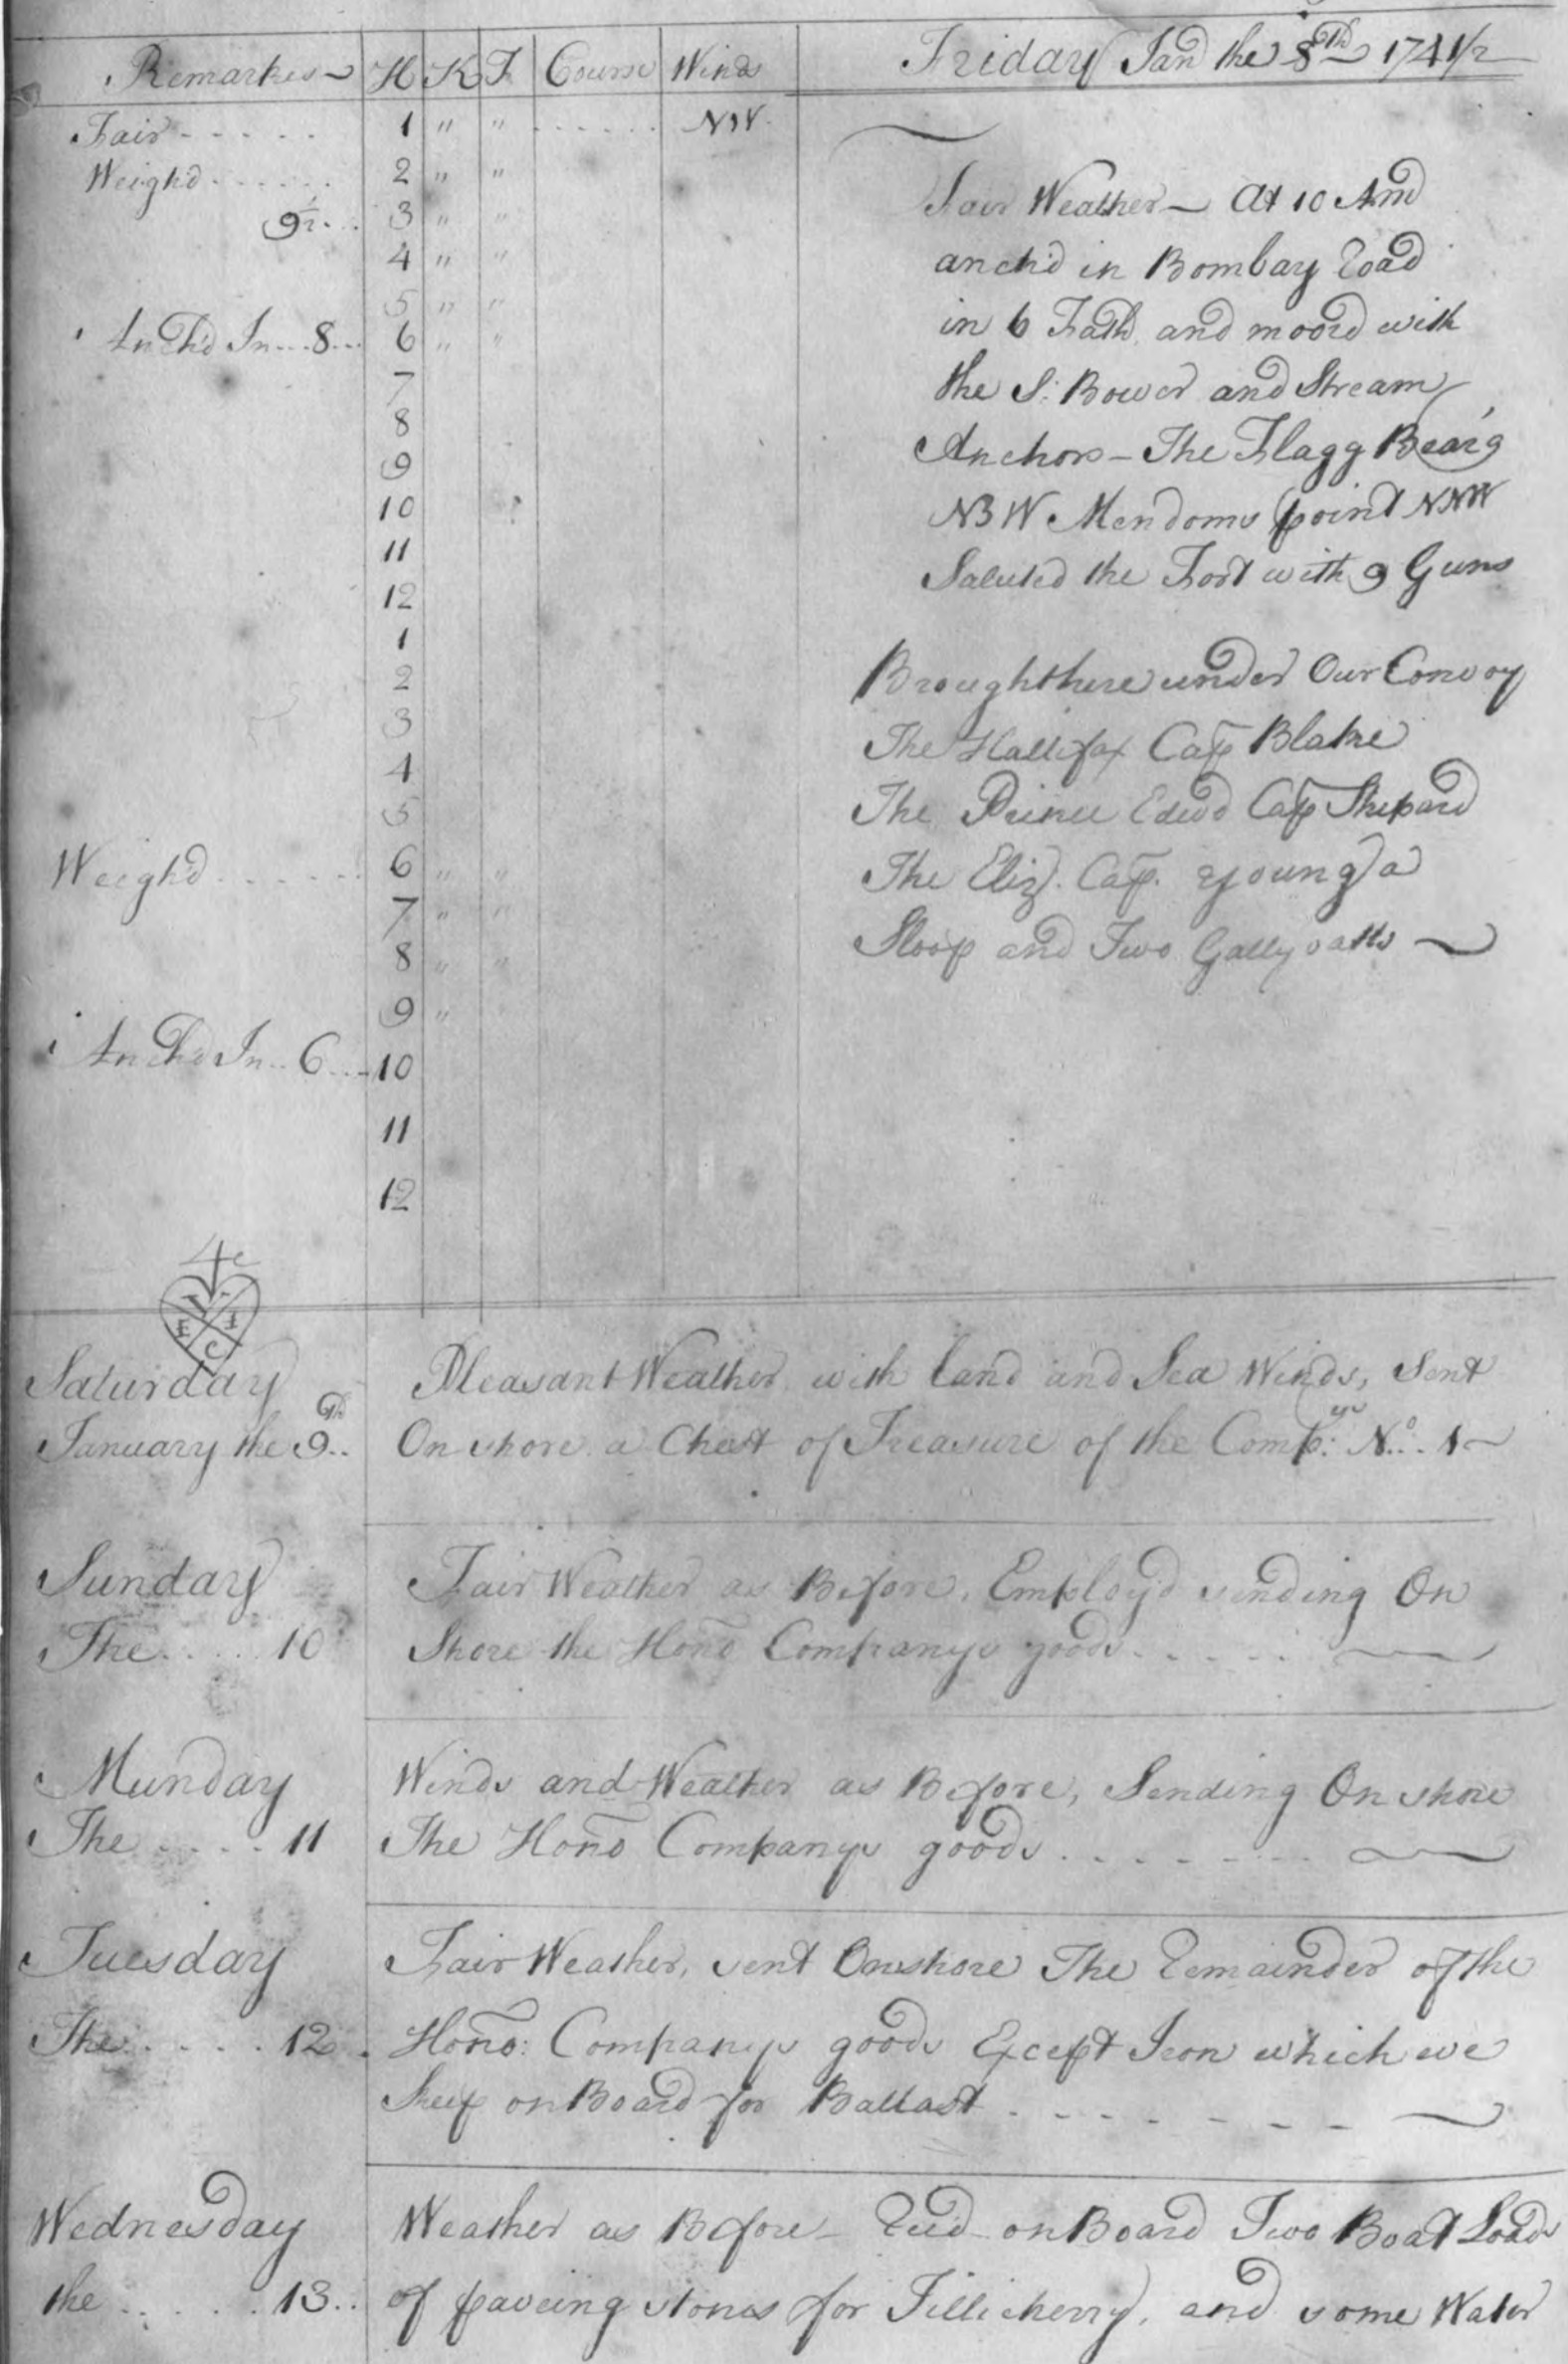 Remarkes H K F Course Winds Friday Jan the 8th 1741/2
Fair - - - - - 1 " " - - - - - - NW
Weigh'd - - - - - 2 " "
9½ - - 3 " "
4 " "
5 " "
Anch'd In - - 8 - - 6 " "
7
8
9
10
11
12
1
2
3
4
5
Weigh'd - - - - - 6 " "
7 " "
8 " "
9 "
Anch'd In - - 6 - - 10
11
12
Fair Weather - At 10 Am
anch'd in Bombay Road
in 6 Fath and moord with
the S: Bower and Stream
Anchors - The Flagg Bear'g
NBW Mendoms point NNW
Saluted the Fort with 9 Guns
Brought here under Our Convoy
The Hallifax Cap Blake
The Prince Edwd Cap Shepard
The Eliz. Cap. Young a
Sloop and Two Gallyvatts
4
E I C
Saturday
January the 9th - -
Pleasant Weather with Land and Sea Winds, Sent
On shore a Chest of Treasure of the Comp:ys No. 1
Sunday
The - - - - 10
Fair Weather as Before, Employ'd sending On
Shore the Hono Companys goods - - - - -
Munday
The - - - - 11
Winds and Weather as Before, Sending On shore
The Hono Companys goods - - - - - - -
Tuesday
The - - - - 12
Fair Weather, sent On shore The Remainder of the
Hono: Companys goods Except Iron which we
Keep on Board for Ballast - - - - - - -
Wednesday
the - - - - 13 - -
Weather as Before - Reed on Board Two Boat Loads
of paveing stones for Tillicherry, and some Water